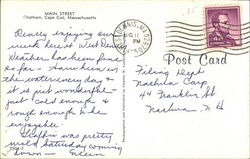 MAIN STREET
Chatham, Cape Cod, Massachusetts
Really enjoying our
week here at West Den
Weather has been fine
so far - Swimming in
the water every day &
it is just wonderful -
just cold enough &
rough enough to be
enjoyable
was pretty
wild Saturday coming
down - Eileen
HYANNIS, MASS
AUG 11
PM
Post Card
Filing Dept
Nashua Corp
44 Franklin St
Nashua, N. H.